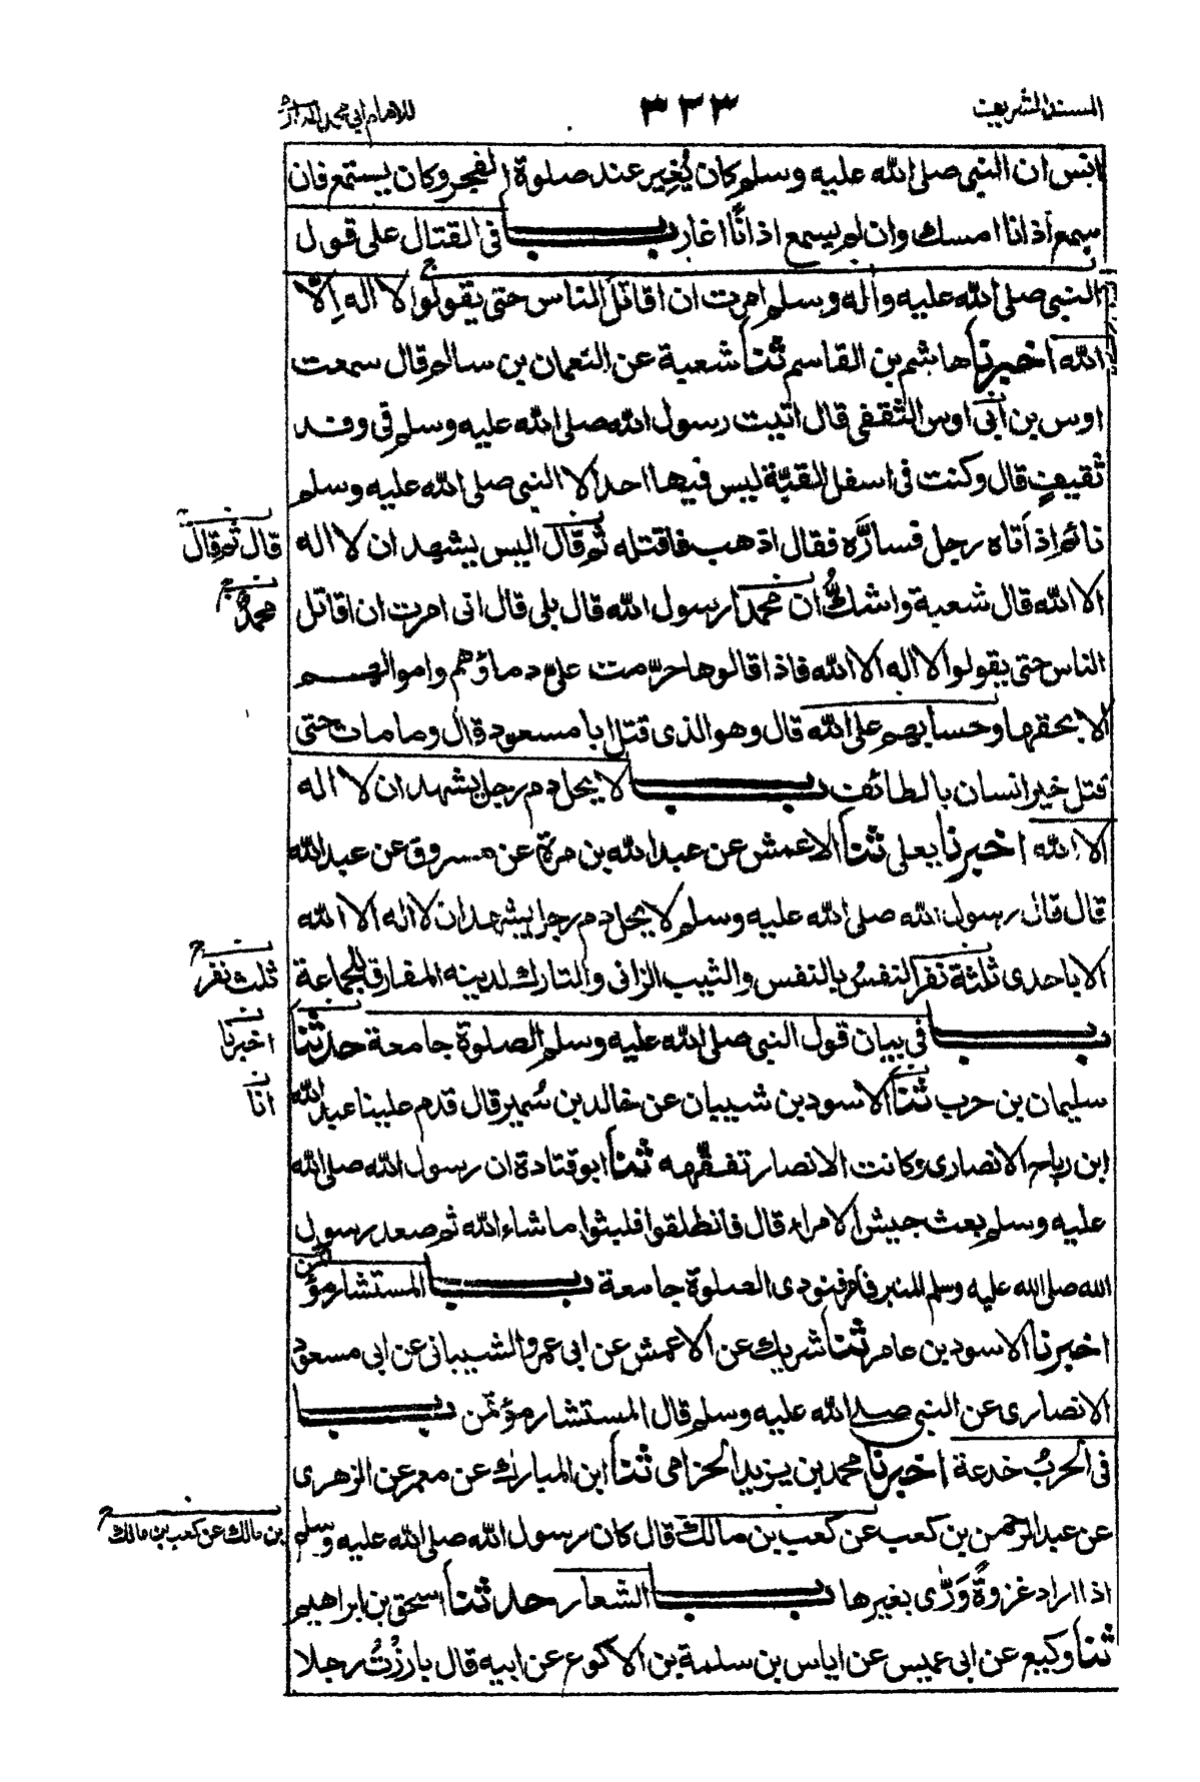 المسند الشريف ٣٣٣ للامام ابي محمد الدارمي
انس ان النبى صلى الله عليه وسلم كان يُغِير عند صلوة الفجر وكان يستمع فان
سمع اذانا امسك وان لم يسمع اذانًا اغار باب فى القتال على قول
النبى صلى الله عليه واله وسلم امرت ان اقاتل الناس حتى يقولوا لا اله اِلّا
الله اخبرنا هاشم بن القاسم ثنا شعبة عن النعمان بن سالم قال سمعت
اوس بن ابى اوس الثقفى قال اتيت رسول الله صلى الله عليه وسلم فى وفد
ثقيفٍ قال وكنت فى اسفل القبّة ليس فيها احد الا النبى صلى الله عليه وسلم
نائم اِذ اَتاه رجل فسارَّه فقال اذهب فاقتله ثم قال اليس يشهد ان لا اله
قال ثم قال
الا الله قال شعبة واشكُّ ان محمدا رسول الله قال بلى قال انى امرت ان اقاتل
محمدٌ
الناس حتى يقولوا لا اله الا الله فاذا قالوها حرّمت علىّ دماؤهم واموالهم
الا بحقها وحسابهم على الله قال وهو الذى قتل ابا مسعود قال وما مات حتى
قتل خير انسان بالطائف باب لا يحل دم رجل يشهد ان لا اله
الا الله اخبرنا يعلى ثنا الاعمش عن عبد الله بن مرة عن مسروق عن عبد الله
قال قال رسول الله صلى الله عليه وسلم لا يحل دم رجل يشهد ان لا اله الا الله
الا باحدى ثلثة نفر النفسُ بالنفس والثيب الزانى والتارك لدينه المفارق للجماعة
ثلث نفر
باب فى بيان قول النبى صلى الله عليه وسلم الصلوة جامعة حدثنا
اخبرنا
سليمان بن حرب ثنا الاسود بن شيبان عن خالد بن سُمير قال قدم علينا عبد الله
انا
ابن رباح الانصارى وكانت الانصار تفقّهه ثنا ابو قتادة ان رسول الله صلى الله
عليه وسلم بعث جيش الامراء قال فانطلقوا فلبثوا ما شاء الله ثم صعد رسول
الله صلى الله عليه وسلم المنبر فامر فنودى الصلوة جامعة باب المستشار مؤتمن
اخبرنا الاسود بن عامر ثنا شريك عن الاعمش عن ابى عمرو الشيبانى عن ابى مسعود
الانصارى عن النبى صلى الله عليه وسلم قال المستشار مؤتمن باب
فى الحربُ خدعة اخبرنا محمد بن يزيد الحزامى ثنا ابن المبارك عن معمر عن الزهرى
عن عبد الرحمن بن كعب عن كعب بن مالك قال كان رسول الله صلى الله عليه وسلم
بن مالك عن كعب بن مالك
اذا اراد غزوةً وَرّٰى بغيرها باب الشعار حدثنا اسحق بن ابراهيم
ثنا وكيع عن ابى عميس عن اياس بن سلمة بن الاكوع عن ابيه قال بارَزْتُ رجلا